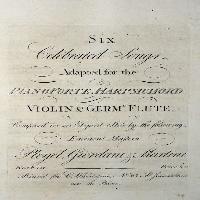 Six
Celebrated Songs
Adapted for the
PIANO FORTE, HARPSICHORD
VIOLIN & GERMn. FLUTE
Composed in an Elegant Stile by the following
Eminent Masters
Pleyel, Giordani, & Martini